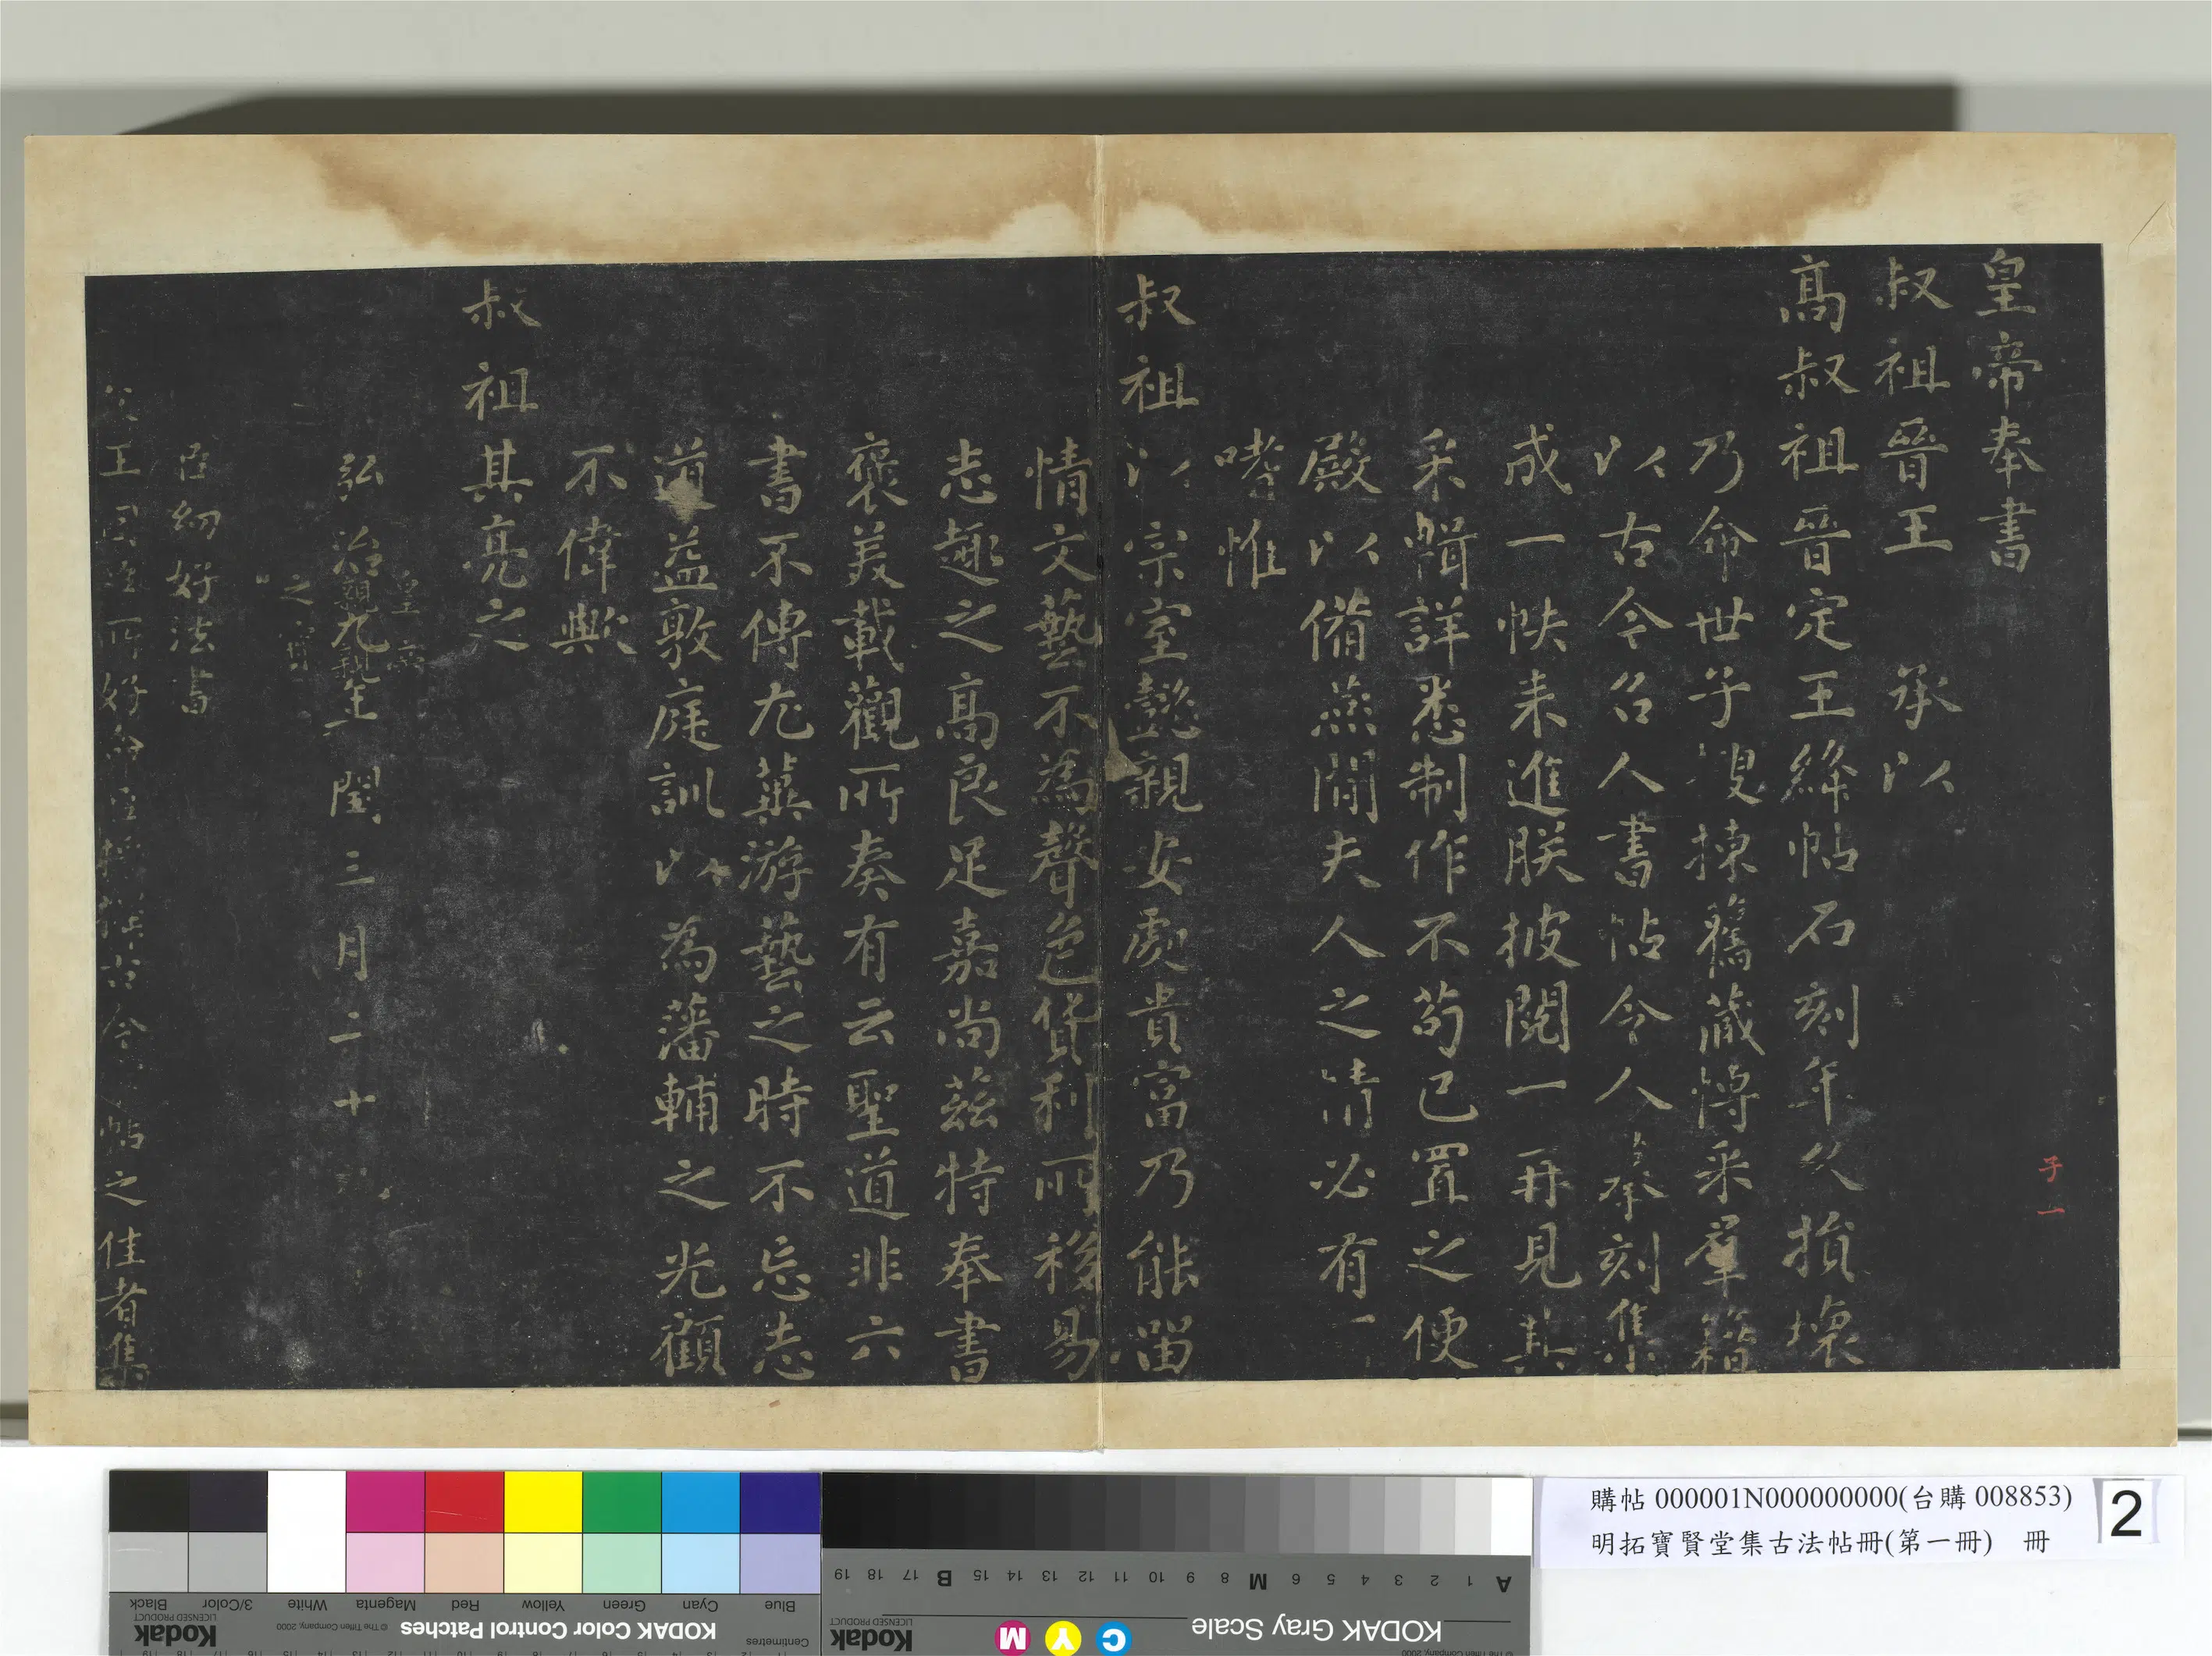 皇帝奉書
叔祖晉王 承以
高叔祖晉定王絳帖石刻年久損壞
乃命世子叟揀舊藏博采羣籍
以古今名人書帖令人摹刻集
成一帙来進朕披閱一再見其
采輯詳悉制作不苟已置之便
殿以備燕閒夫人之情必有一
嗜惟
叔祖以宗室懿親安處貴富乃能留
情文藝不為聲色貨利所移易
志趣之高良足嘉尚茲特奉書
褒美載觀所奏有云聖道非六
書不傳尤蘄游藝之時不忘志
道益敦庭訓以為藩輔之光顧
不偉歟
叔祖其亮之
皇
弘治九年閏三月二十
親親
之寶
臣幼好法書
父王因臣所好命臣 古今 帖之佳者集
子一
購帖 000001N000000000(台購 008853)
明拓寶賢堂集古法帖冊(第一冊) 冊
2
Black 3/Color White Magenta Red Yellow Green Cyan Blue
Kodak
LICENSED PRODUCT
© The Tiffen Company, 2000
KODAK Color Control Patches
Centimetres
A 1 2 3 4 5 6 M 8 9 10 11 12 13 14 15 B 17 18 19
KODAK Gray Scale
C Y M
Kodak
LICENSED PRODUCT